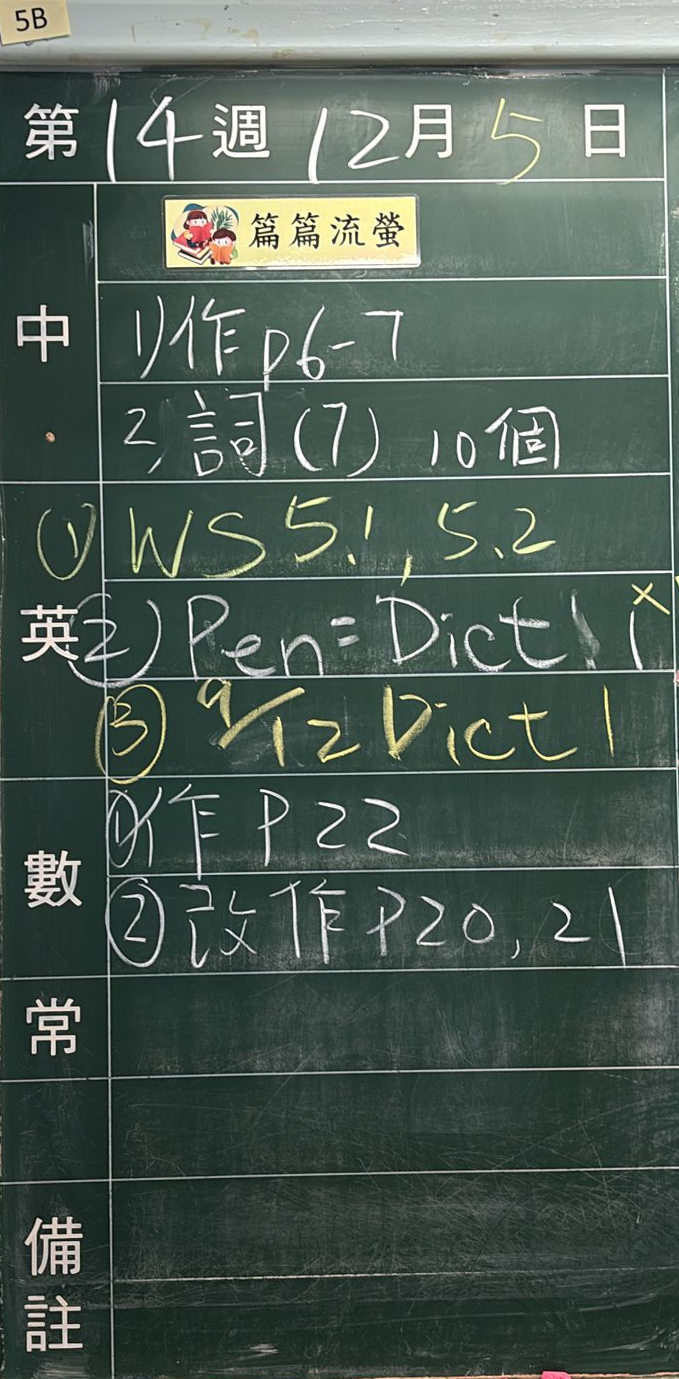 5B
第14週 12月5日
篇篇流螢
中
1)作p6-7
2)詞(7) 10個
英
(1) WS 5.1, 5.2
(2) Pen= Dict 1
③ 9/12 Dict 1
數
①作P22
②改作P20, 21
常
備註